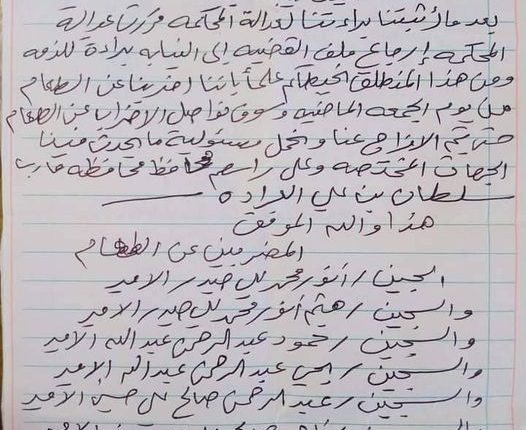 بعد ما أثبتنا براءتنا لعدالة المحكمه قررت عدالة
المحكمه إرجاع ملف القضيه إلى النيابه براءة للذمه
ومن هذا المنطلق علماً بأننا اضربنا عن الطعام
من يوم الجمعه الماضيه وسوف نواصل الاضراب عن الطعام
حتى يتم الافراج عنا ونحمل مسئولية ما يحدث فينا
الجهات المختصه وعلى راسهم محافظ محافظة مارب
سلطان بن علي العرادة
هذا والله الموفق
المضربين عن الطعام
السجين / أنور محمد علي حيدر الامير
والسجين / هيثم أنور محمد علي حيدر الامير
والسجين / حمود عبدالرحمن عبدالله الامير
والسجين / يحي عبدالرحمن عبدالله الامير
والسجين / عبدالرحمن صالح علي حسين الامير